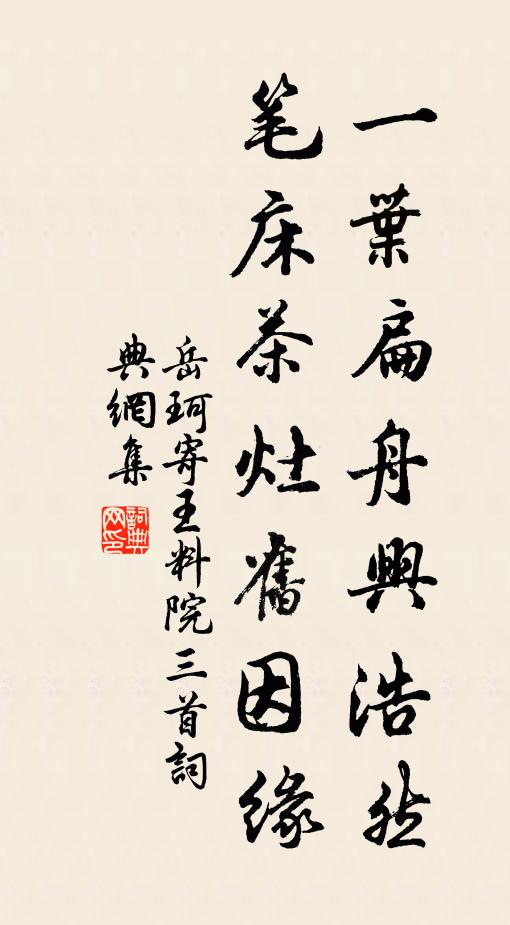 一葉扁舟興浩然
笔床茶灶舊因緣
岳珂寄王料院三首詞
典網集
詞典網印